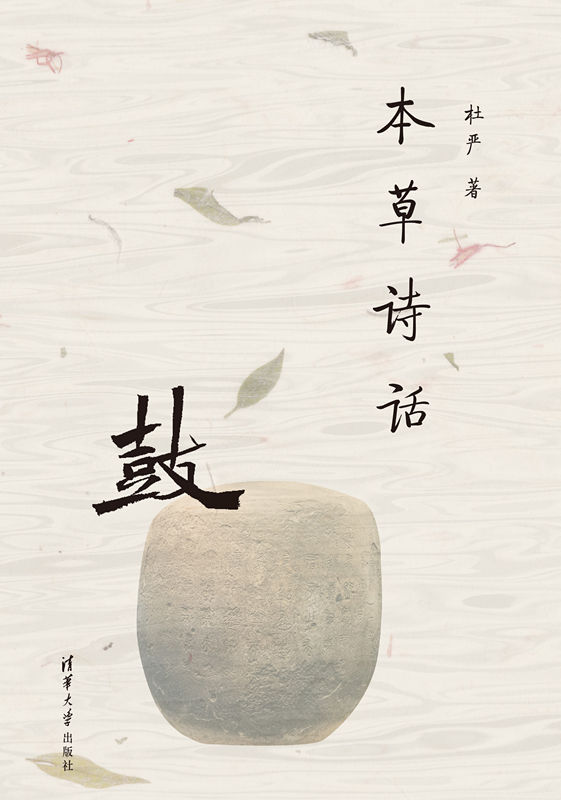 杜严 著
本草诗话
鼓
清华大学出版社